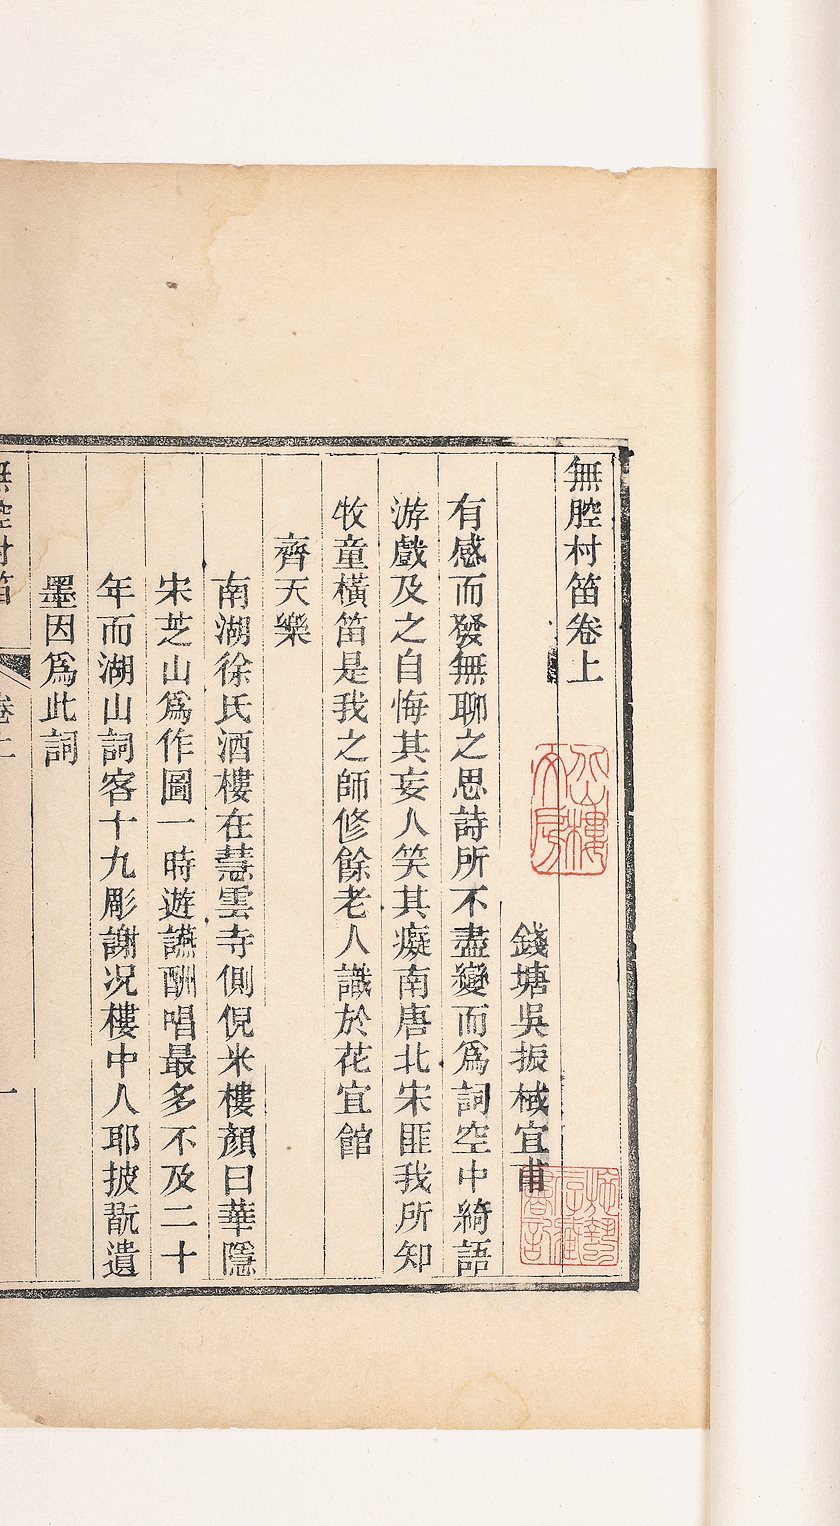 無腔村笛卷上
錢塘吳振棫宜甫
有感而發無聊之思詩所不盡變而爲詞空中綺語
游戲及之自悔其妄人笑其癡南唐北宋匪我所知
牧童橫笛是我之師修餘老人識於花宜館
齊天樂
南湖徐氏酒樓在慧雲寺側倪米樓顏曰華隱
宋芝山爲作圖一時遊讌酬唱最多不及二十
年而湖山詞客十九彫謝况樓中人耶披翫遺
墨因爲此詞
無腔村笛 卷上 一